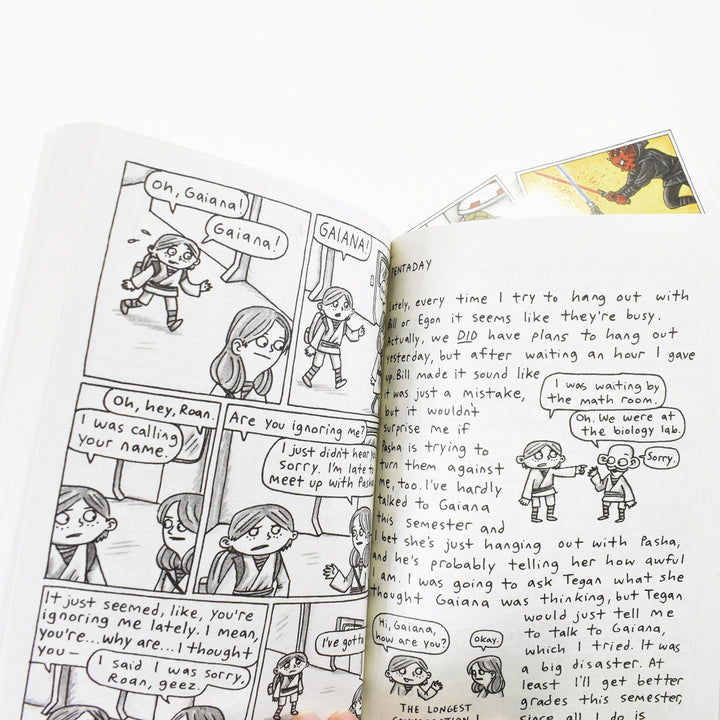 Oh, Gaiana!
Gaiana!
GAIANA!
Oh, hey, Roan.
I was calling
your name.
Are you ignoring me?
I just didn't hear
Sorry. I'm late to
meet up with Pasha
It just seemed, like, you're
ignoring me lately. I mean,
you're...why are...I thought
you—
I said I was sorry,
Roan, geez.
I've gotta
PENTADAY
Lately, every time I try to hang out with
Bill or Egon it seems like they're busy.
Actually, we DID have plans to hang out
yesterday, but after waiting an hour I gave
up. Bill made it sound like
it was just a mistake,
but it wouldn't
surprise me if
Pasha is trying to
turn them against
me, too. I've hardly
talked to Gaiana
this semester and
I bet she's just hanging out with Pasha,
and he's probably telling her how awful
I am. I was going to ask Tegan what she
thought Gaiana was thinking, but Tegan
would just tell me
to talk to Gaiana,
which I tried. It was
a big disaster. At
least I'll get better
grades this semester,
since all I do is
I was waiting by
the math room.
Oh. We were at
the biology lab.
Sorry.
Hi, Gaiana,
how are you?
Okay.
THE LONGEST